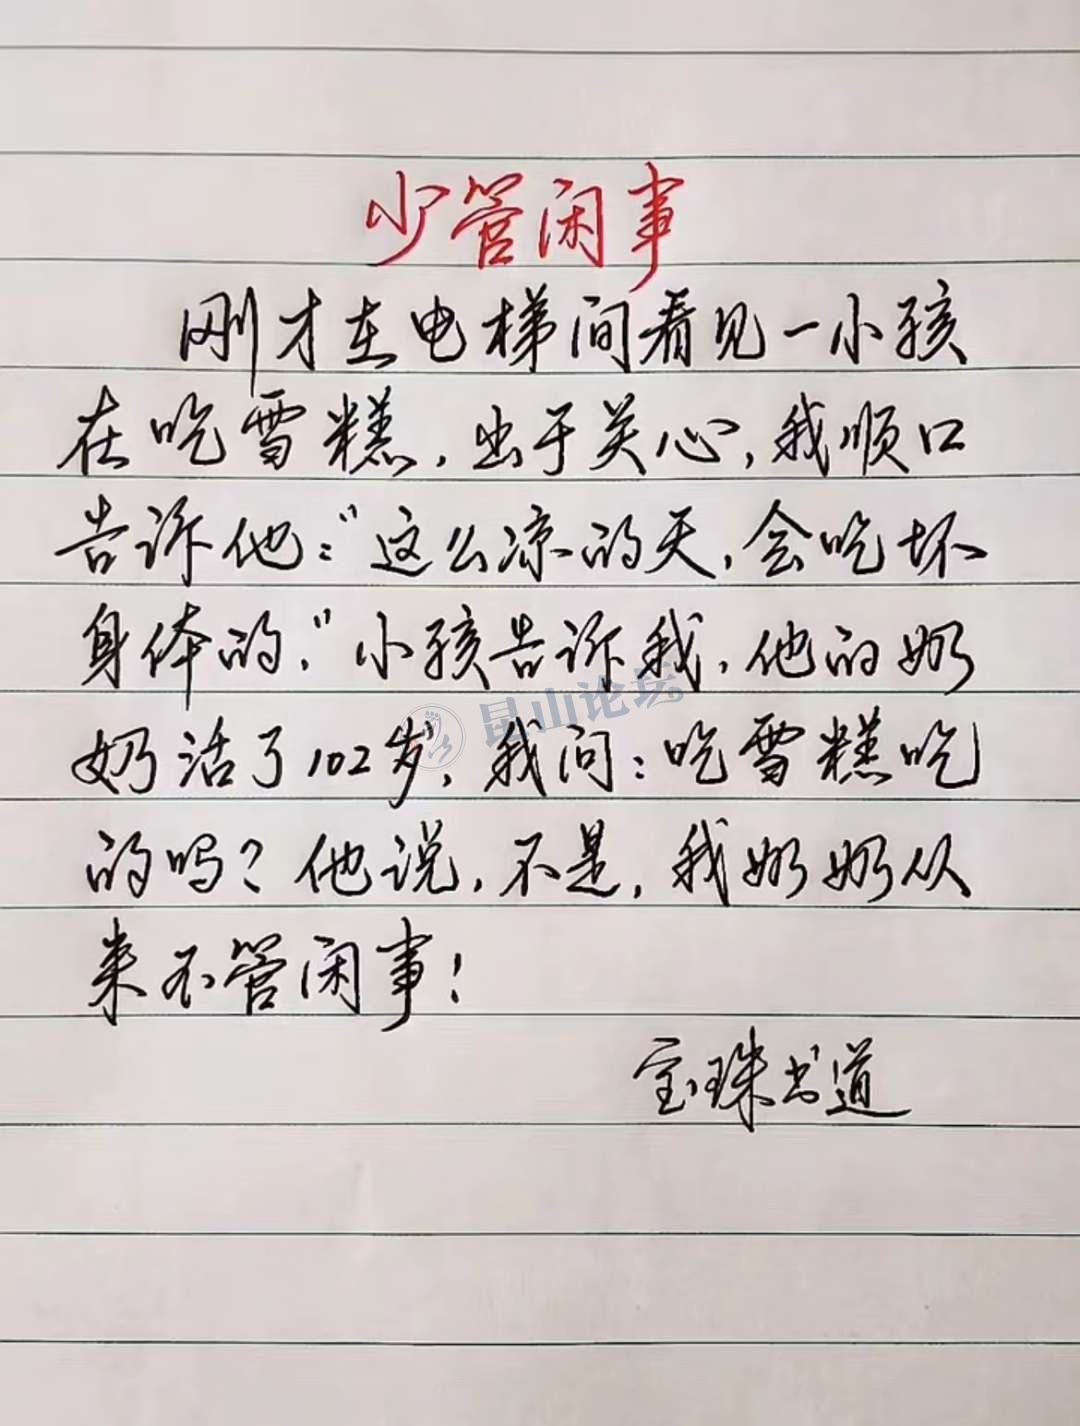 少管闲事
刚才在电梯间看见一小孩
在吃雪糕，出于关心，我顺口
告诉他：“这么凉的天，会吃坏
身体的，”小孩告诉我，他的奶
奶活了102岁，我问：吃雪糕吃
的吗？他说，不是，我奶奶从
来不管闲事！
宝珠书道
昆山论坛